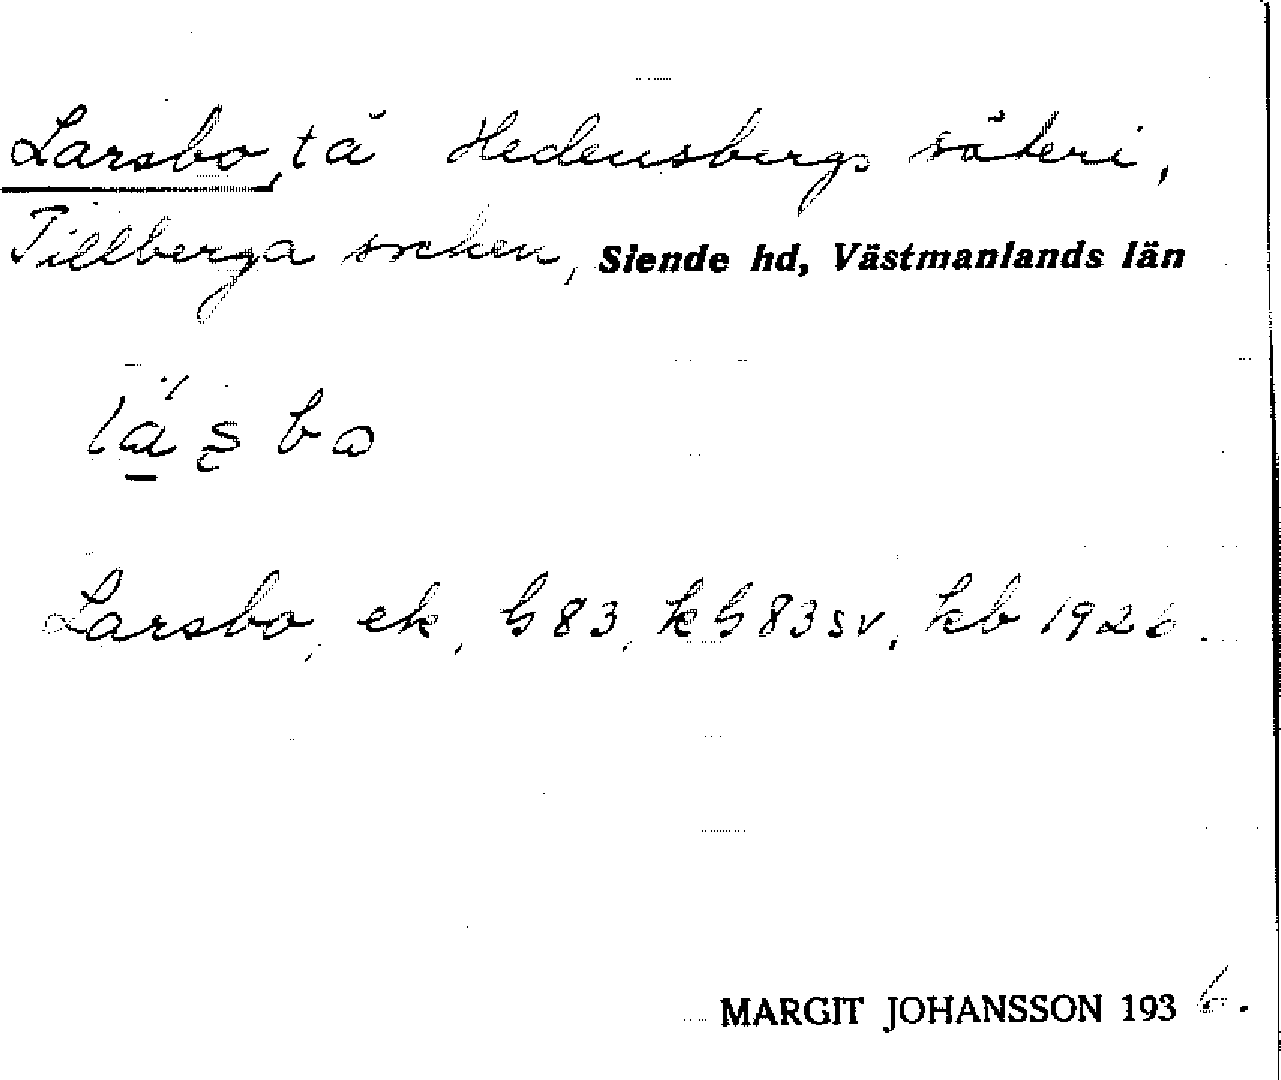 Larsbo, tä Hedensbergs säteri,
Tillberga socken, Siende hd, Västmanlands län
Larsbo, ek, G 83, k G 83 sv, kb 1926.
MARGIT JOHANSSON 1936.